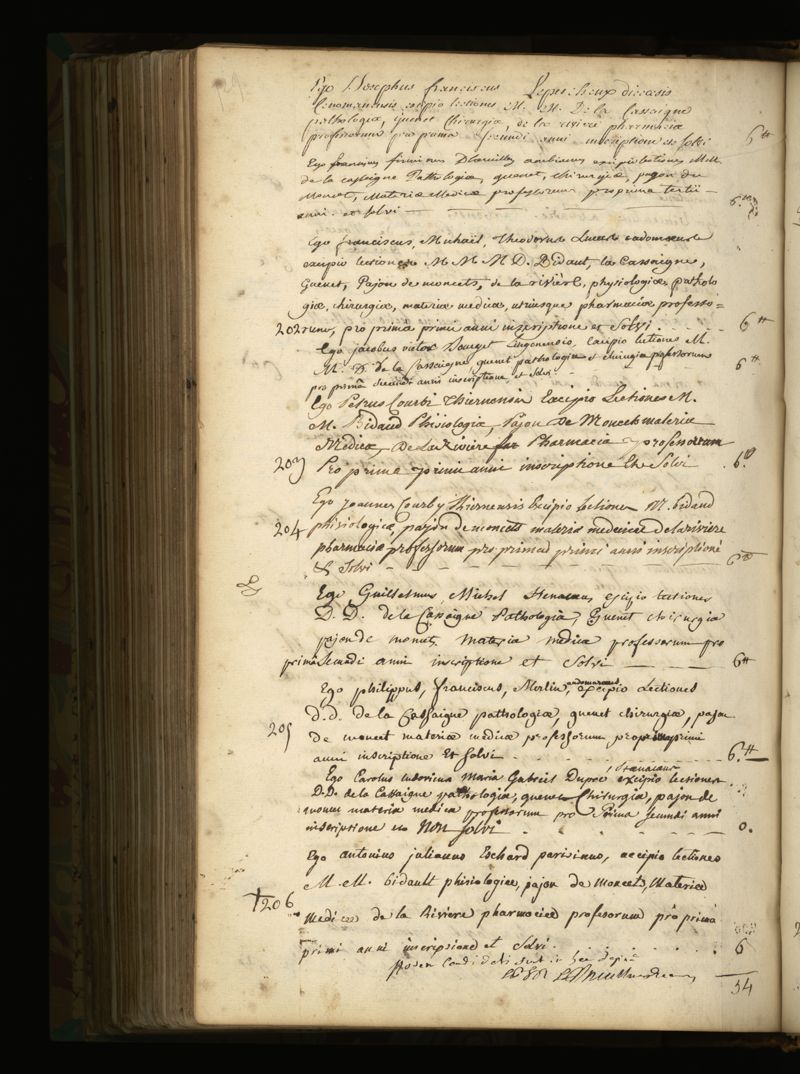 Ego Josephus franciscus Lepescheux diecesis
Cenomanensis excipio lectiones M. M. De la Cassaigne
pathologiæ, quenet Chirurgiæ, de la riviere pharmaciæ
professorum pro prima secundi anni inscriptione et solvi 6 tt
Ego francisus firminus ambianus excipio lectiones MM.
de la cassaigne Pathologiæ, quenet, chirurgiæ, pajon de
Moncet, Materiæ Medicæ professorum pro prima tertii
anni et solvi 6 tt
Ego franciscus, Michaël, Theodorus cadomensis
excipio lectiones M M M D. Bidaut, la Cassaigne,
Guenet, Pajon de moncets, de la rivière, physiologiæ, patholo
giæ, chirurgiæ, materiæ medicæ, utriusque pharmaciæ professo=
202 rum, pro primâ primi anni inscriptione et Solvi. 6 tt
Ego jacobus victor Lingonensis, excipio lectiones M.
M. D. de la Cassaigne quenet pathologiæ et chirurgiæ professorum
pro primâ secundi anni inscriptione, et solvi 6 tt
Ego Petrus Courbi Thiernensis Excipio Lectiones M.
M. Bidaud Phisiologiæ, Pajon De Moncets materiæ
Medicæ, De La Riviere Pharmacia professorum
203 Pro prima primi anni inscriptione Et Solvi 6 tt
Ego Joannes Courby Thiernensis Excipio lectiones M. bidaud
204 phisiologiæ, pajon de moncets materiæ medicæ de la riviere
pharmaciæ professorum pro prima primi anni inscriptione
& Solvi 6 tt
Ego Guillelmus Michel excipio lectiones
D. D. de la Cassaigne Pathologia, Guenet chirurgia
pajon de monet, materia medica professorum pro
prima secundi anni inscriptione et Solvi 6 tt
Ego philippus, franciscus, Merlin, audomarensis excipio Lectiones
d. d. de la Cassaigne pathologiæ, quenet chirurgiæ, pajon
205 de moncet materiæ medicæ professorum pro primi
anni inscriptione Et solvi 6 tt
Ego Carolus Ludovicus Maria Gabriel Dupré excipio lectiones
D. D. de la Cassaigne pathologiæ, quenet Chirurgiæ, pajon de
moncet materia medica professorum pro Prima secundi anni
inscriptione et Non solvi 0.
Ego antonius julianus Eschard parisinus, excipio lectiones
M. M. bidault phisiologiæ, pajon de Moncets, Materiæ
†206 Medicæ de la Riviere pharmaciæ professorum pro prima
primi anni inscripsione et Solvi. 6
candidati sunt in hac
54